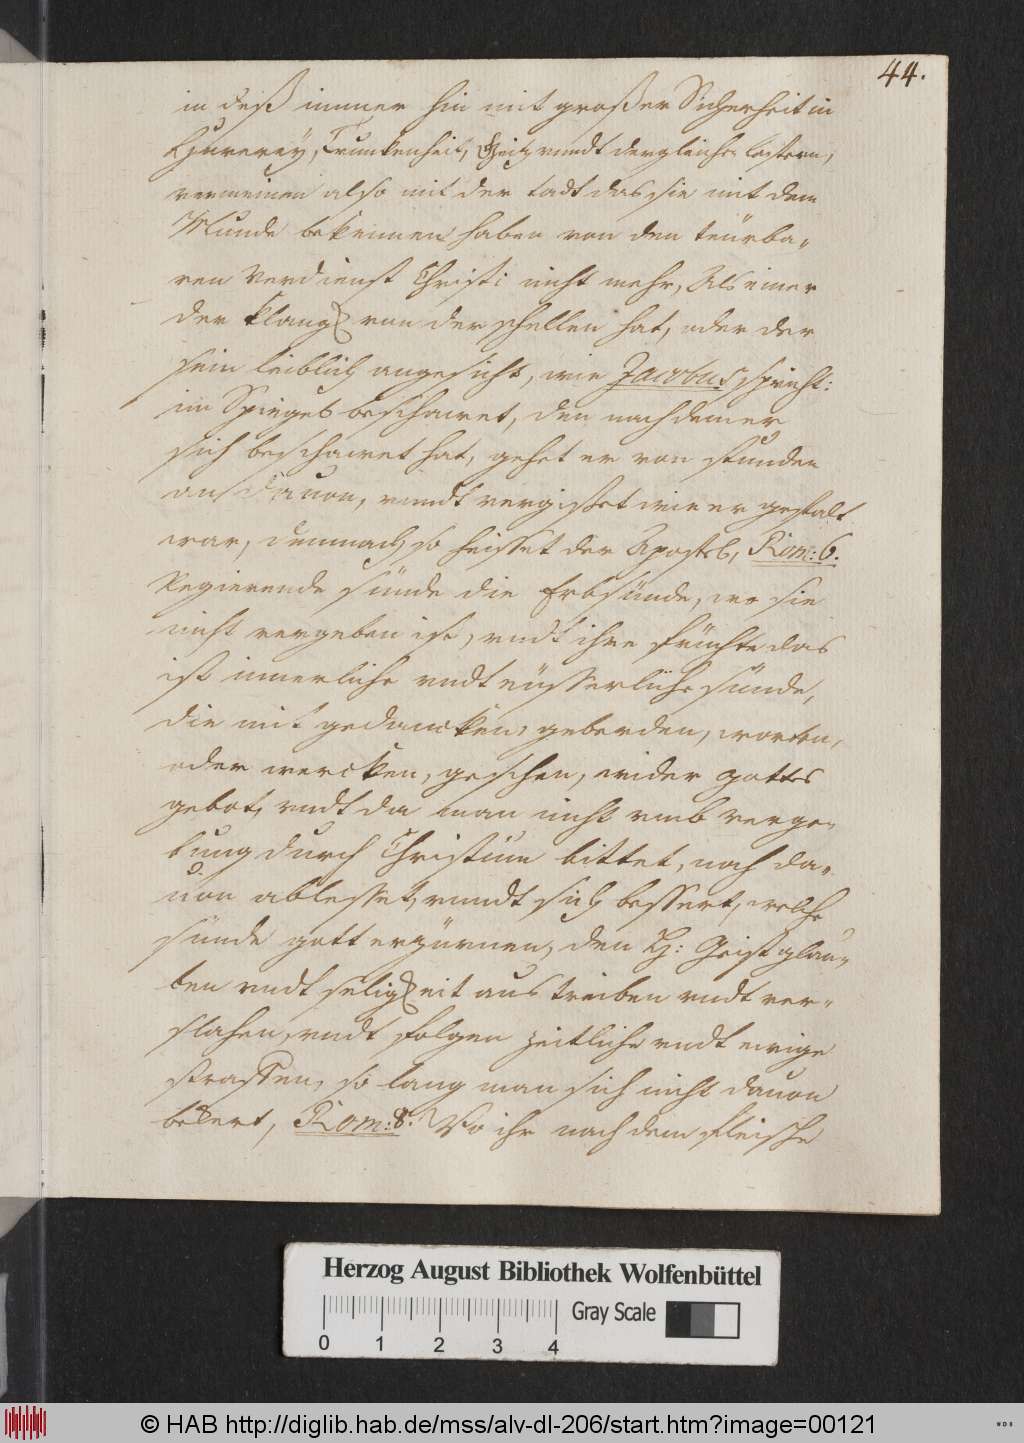 44.
in deß immer hin mit großer Sicherheit in
Hurerey, Trunkenheit, Geitz vundt dergleichen lastern,
vermeinen also mit der tadt das sie mit dem
Munde bekennen haben von den teürba-
ren Verdienst Christi nicht mehr, Als einer
der klang von der schellen hat, oder der
sein leiblich angesicht, wie Jacobus spricht:
im Spiegel beschawet, den nach dem er
sich beschawet hat, gehet er von stunden
an dauon, vundt vergisset wie er gestalt
war, demnach so heisset der Apostel, Rom: 6.
Regierende sünde die Erbsünde, wo sie
nicht vergeben ist, vndt ihre früchte das
ist innerliche vndt eüsserliche sünde,
die mit gedancken, geberden, worten,
oder wercken, geschen, wider gottes
gebot, vndt da man nicht vmb verge-
bung durch Christum bittet, noch da-
uon ablesset, vundt sich bessert, welche
sünde gott erzürnen, den H: Geist glau-
ben vndt seligkeit aus treiben vndt ver-
stohen, vndt folgen zeitliche vndt ewige
straffen, so lang man sich nicht dauon
bekert, Rom: 8. Wo ihr nach dem fleische
Herzog August Bibliothek Wolfenbüttel
Gray Scale
0 1 2 3 4
© HAB http://diglib.hab.de/mss/alv-dl-206/start.htm?image=00121